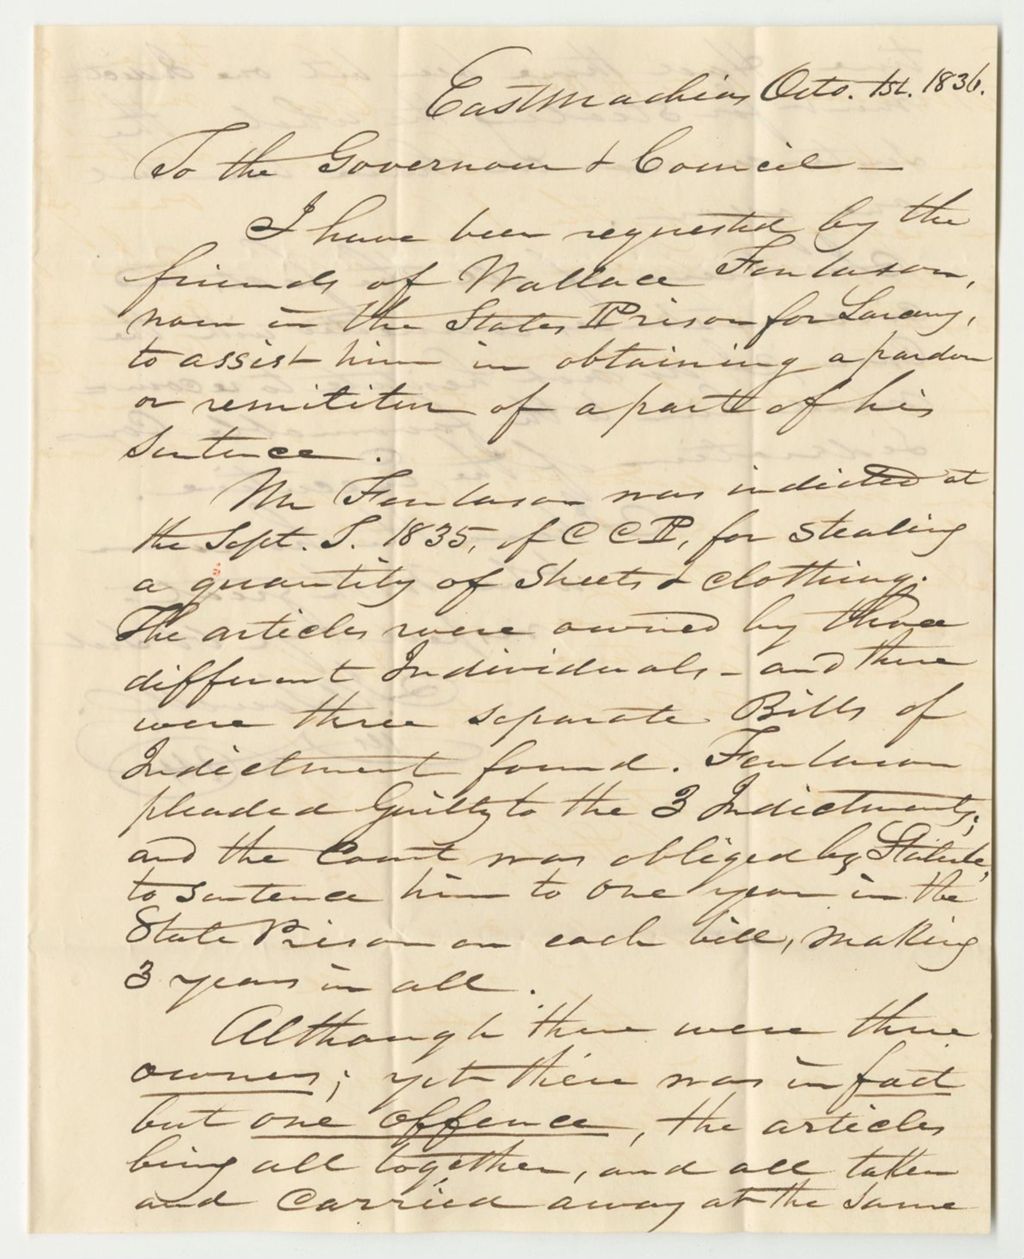 East Machias Octo. 1st. 1836.
To the Governour & Council —
I have been requested by the
friends of Wallace Fenlason,
now in the States Prison for Larceny,
to assist him in obtaining a pardon
or remititur of a part of his
Sentence.
Mr Fenlason was indicted at
the Sept. T. 1835, of C C P, for stealing
a quantity of Sheets & clothing.
The articles were owned by three
different Individuals - and there
were three separate Bills of
Indictment found. Fenlason
pleaded Guilty to the 3 Indictments;
and the Court was obliged by Statute,
to sentence him to one year in the
State Prison on each bill, making
3 years in all.
Although there were three
owners; yet there was in fact
but one offence, the articles
being all together, and all taken
and carried away at the same